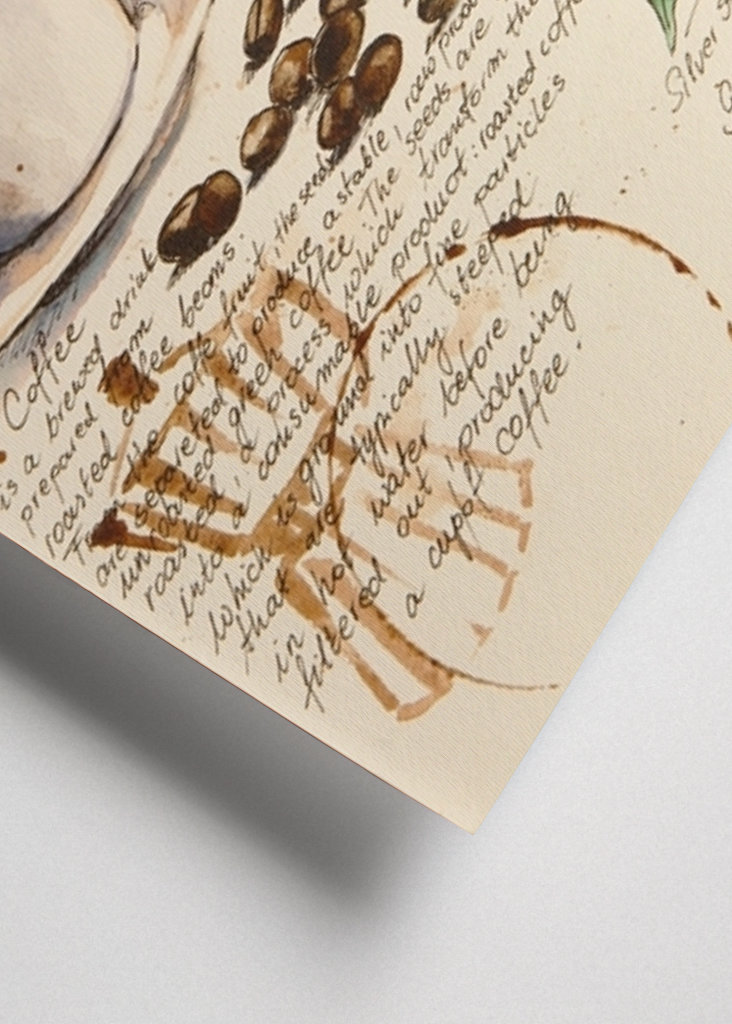 Coffee
is a brewed drink
prepared from
roasted coffee beans.
From the coffe fruit, the seeds
are separeted to produce a stable, raw prod
unroasted green coffee. The seeds are
roasted, a process which transform the
into a consumable product: roasted coff
which is ground into fine particles
that are typically steeped
in hot water before being
filtered out, producing
a cupoff coffee.
Silver S